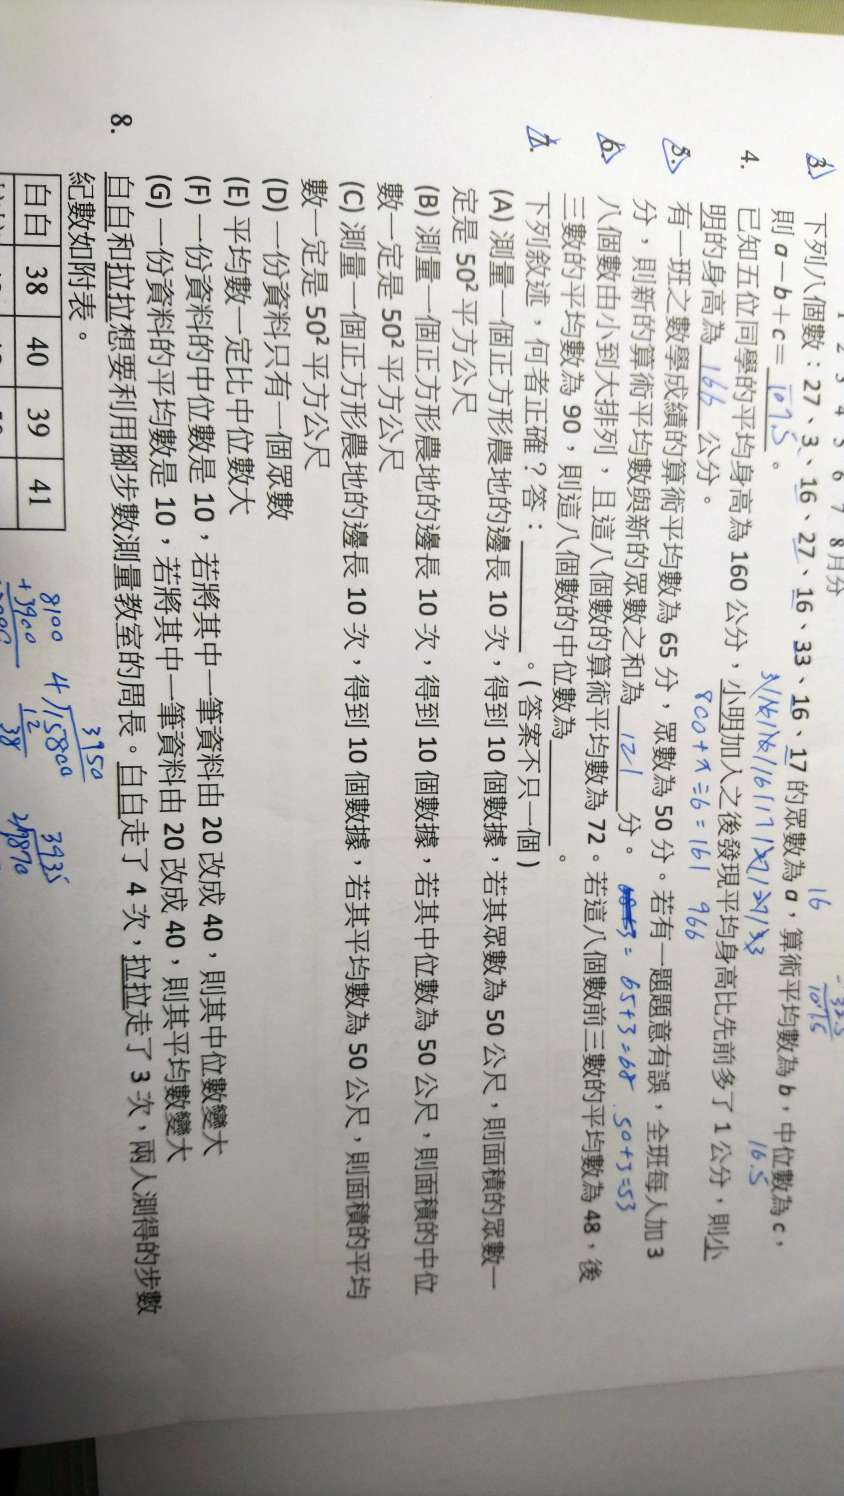 1 2 3 4 5 6 7 8月分
3. 下列八個數：27、3、16、27、16、33、16、17 的眾數為 a，算術平均數為 b，中位數為 c，
16
16.5
則 a－b＋c＝ 10.75 。
3/16/16/16/17/27/27/33
4. 已知五位同學的平均身高為 160 公分，小明加入之後發現平均身高比先前多了 1 公分，則小
明的身高為 166 公分。
800+x÷6=161 966
5. 有一班之數學成績的算術平均數為 65 分，眾數為 50 分。若有一題題意有誤，全班每人加 3
分，則新的算術平均數與新的眾數之和為 121 分。
= 65+3=68 50+3=53
6. 八個數由小到大排列，且這八個數的算術平均數為 72。若這八個數前三數的平均數為 48，後
三數的平均數為 90，則這八個數的中位數為 。
7. 下列敘述，何者正確？答： 。(答案不只一個)
(A) 測量一個正方形農地的邊長 10 次，得到 10 個數據，若其眾數為 50 公尺，則面積的眾數一
定是 50² 平方公尺
(B) 測量一個正方形農地的邊長 10 次，得到 10 個數據，若其中位數為 50 公尺，則面積的中位
數一定是 50² 平方公尺
(C) 測量一個正方形農地的邊長 10 次，得到 10 個數據，若其平均數為 50 公尺，則面積的平均
數一定是 50² 平方公尺
(D) 一份資料只有一個眾數
(E) 平均數一定比中位數大
(F) 一份資料的中位數是 10，若將其中一筆資料由 20 改成 40，則其中位數變大
(G) 一份資料的平均數是 10，若將其中一筆資料由 20 改成 40，則其平均數變大
8. 白白和拉拉想要利用腳步數測量教室的周長。白白走了 4 次，拉拉走了 3 次，兩人測得的步數
紀數如附表。
白白 38 40 39 41
8100
+3900
3950
4/15800
12
38
3935
2/7870